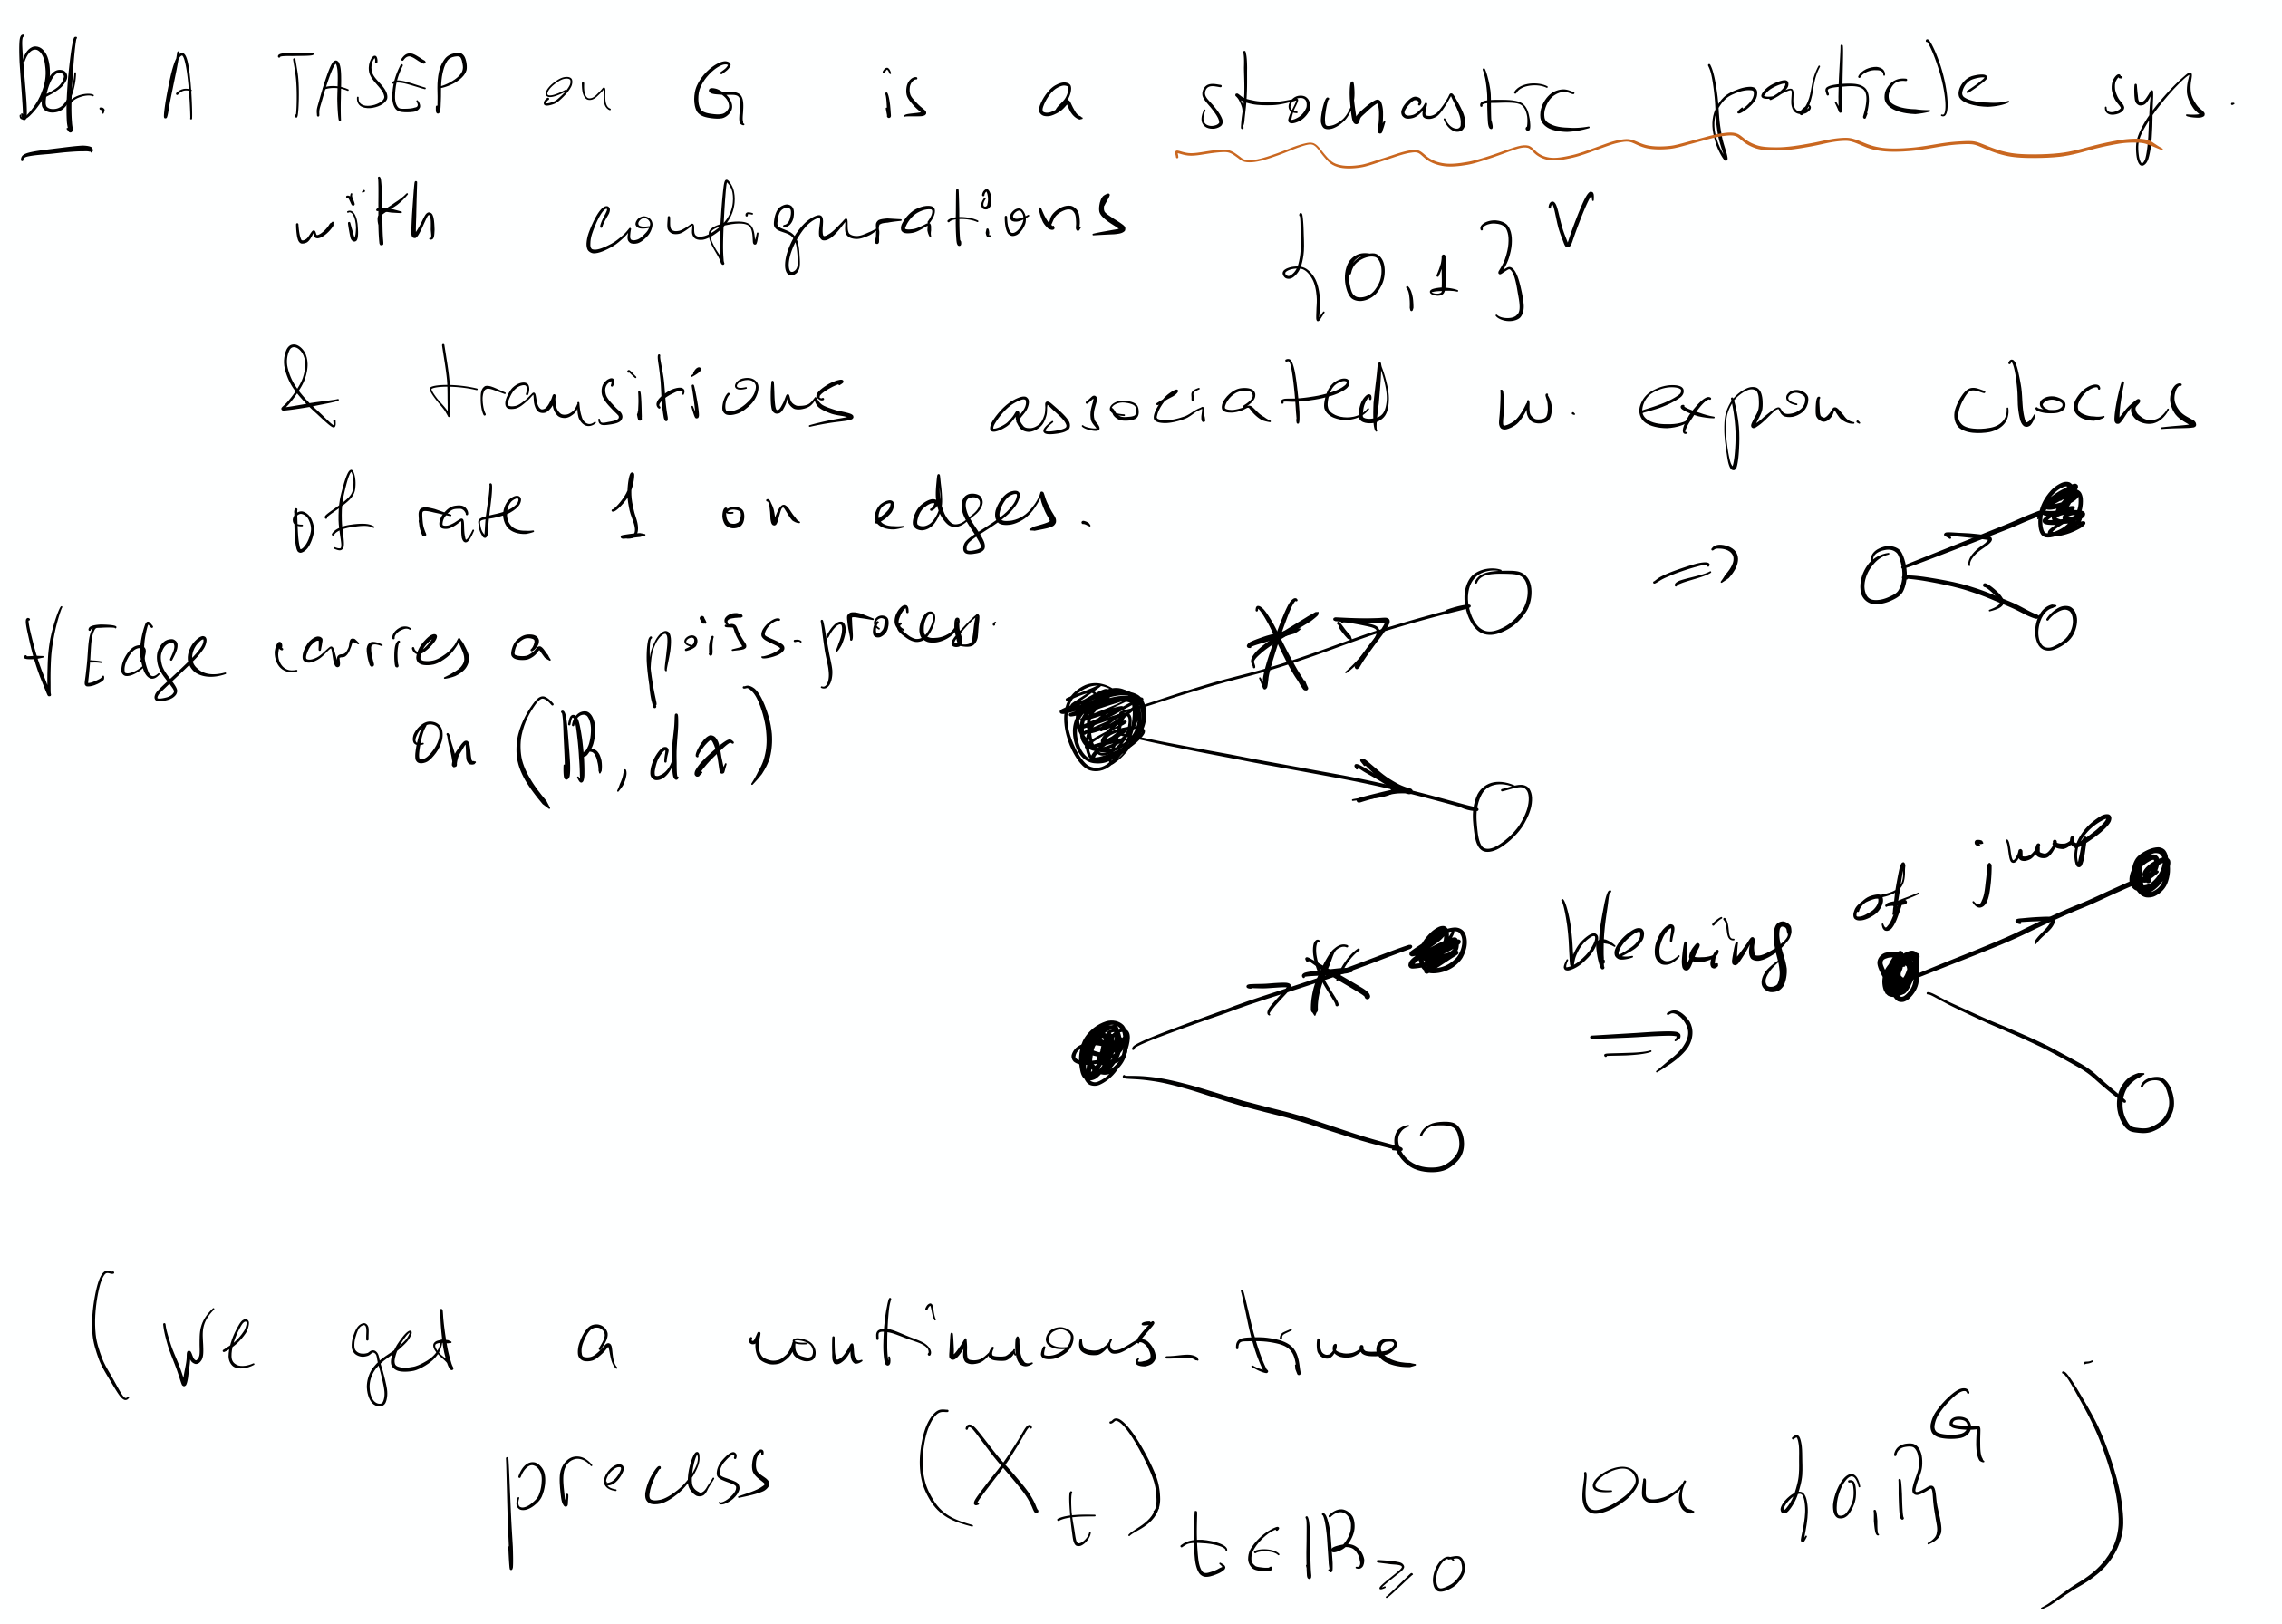 Def. A TASEP on G is a stochastic particle sys.
with configurations {0,1}^V
& transitions associated w. expon. clocks
of rate 1 on edges.
∀ Edge carries a poiss. process.
on (ℝ, dx)
⇒
blocking of jump
⇒
(We get a continuous-time
process (X_t)_{t∈ℝ_{≥0}} on {0,1}^G)